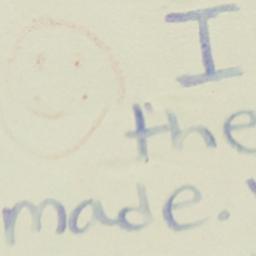 I
the
made.